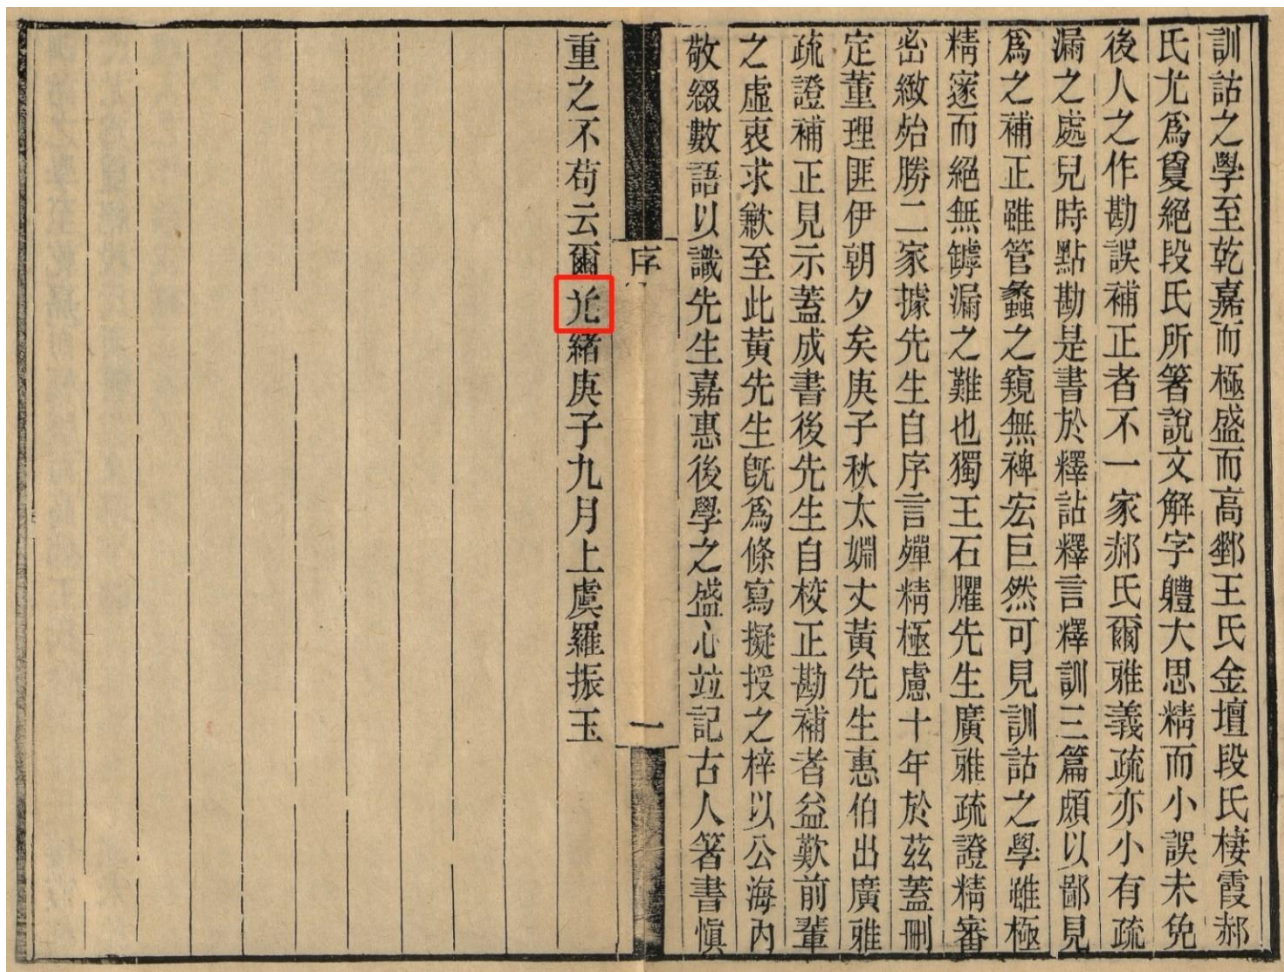 訓詁之學至乾嘉而極盛而高郵王氏金壇段氏棲霞郝
氏尤爲夐絕段氏所箸說文解字軆大思精而小誤未免
後人之作勘誤補正者不一家郝氏爾雅義疏亦小有疏
漏之處兒時點勘是書於釋詁釋言釋訓三篇頗以鄙見
爲之補正雖管蠡之窺無裨宏巨然可見訓詁之學雖極
精邃而絕無罅漏之難也獨王石臞先生廣雅疏證精審
密緻殆勝二家據先生自序言殫精極慮十年於茲蓋刪
定董理匪伊朝夕矣庚子秋太嫻丈黃先生惠伯出廣雅
疏證補正見示蓋成書後先生自校正勘補者益歎前輩
之虛衷求歉至此黃先生旣爲條寫擬授之梓以公海內
敬綴數語以識先生嘉惠後學之盛心竝記古人箸書愼
序
一
重之不苟云爾光緒庚子九月上虞羅振玉